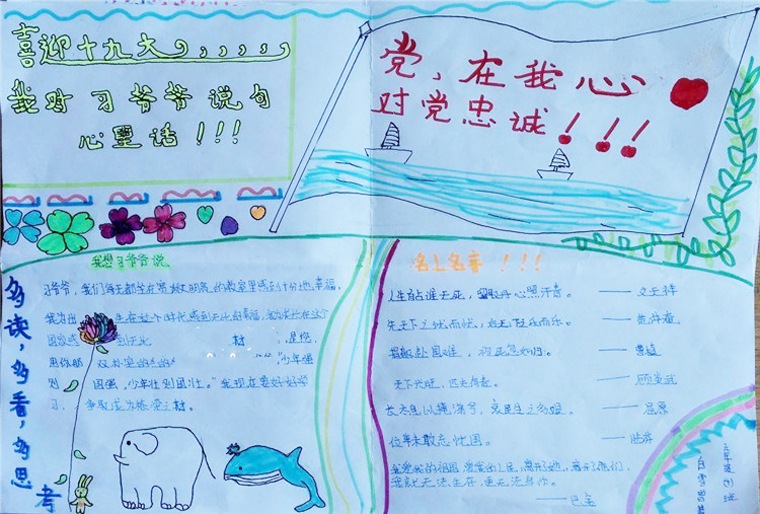 喜迎十九大
我对习爷爷说句
心里话！！！
党，在我心
对党忠诚！！！
我想习爷爷说
习爷爷，我们每天都坐在宽敞明亮的教室里感到十分地幸福。
我为出 生在这个时代感到无比的幸福，
"少年强
则 国强，少年壮则国壮。"我现在要好好学
习，争取成为栋梁之材。
多读，多看，多思考
名人名言！！！
人生自古谁无死，留取丹心照汗青。——文天祥
先天下之忧而忧，后天下之乐而乐。——范仲淹
捐躯赴国难，视死忽如归。——曹植
天下兴旺，匹夫有责。——顾炎武
长太息以掩涕兮，哀民生之多艰。——屈原
位卑未敢忘忧国。——陆游
我爱我的祖国，爱我的人民，离开了她，离开了他们，
我就无法生存，更无法写作。
——巴金